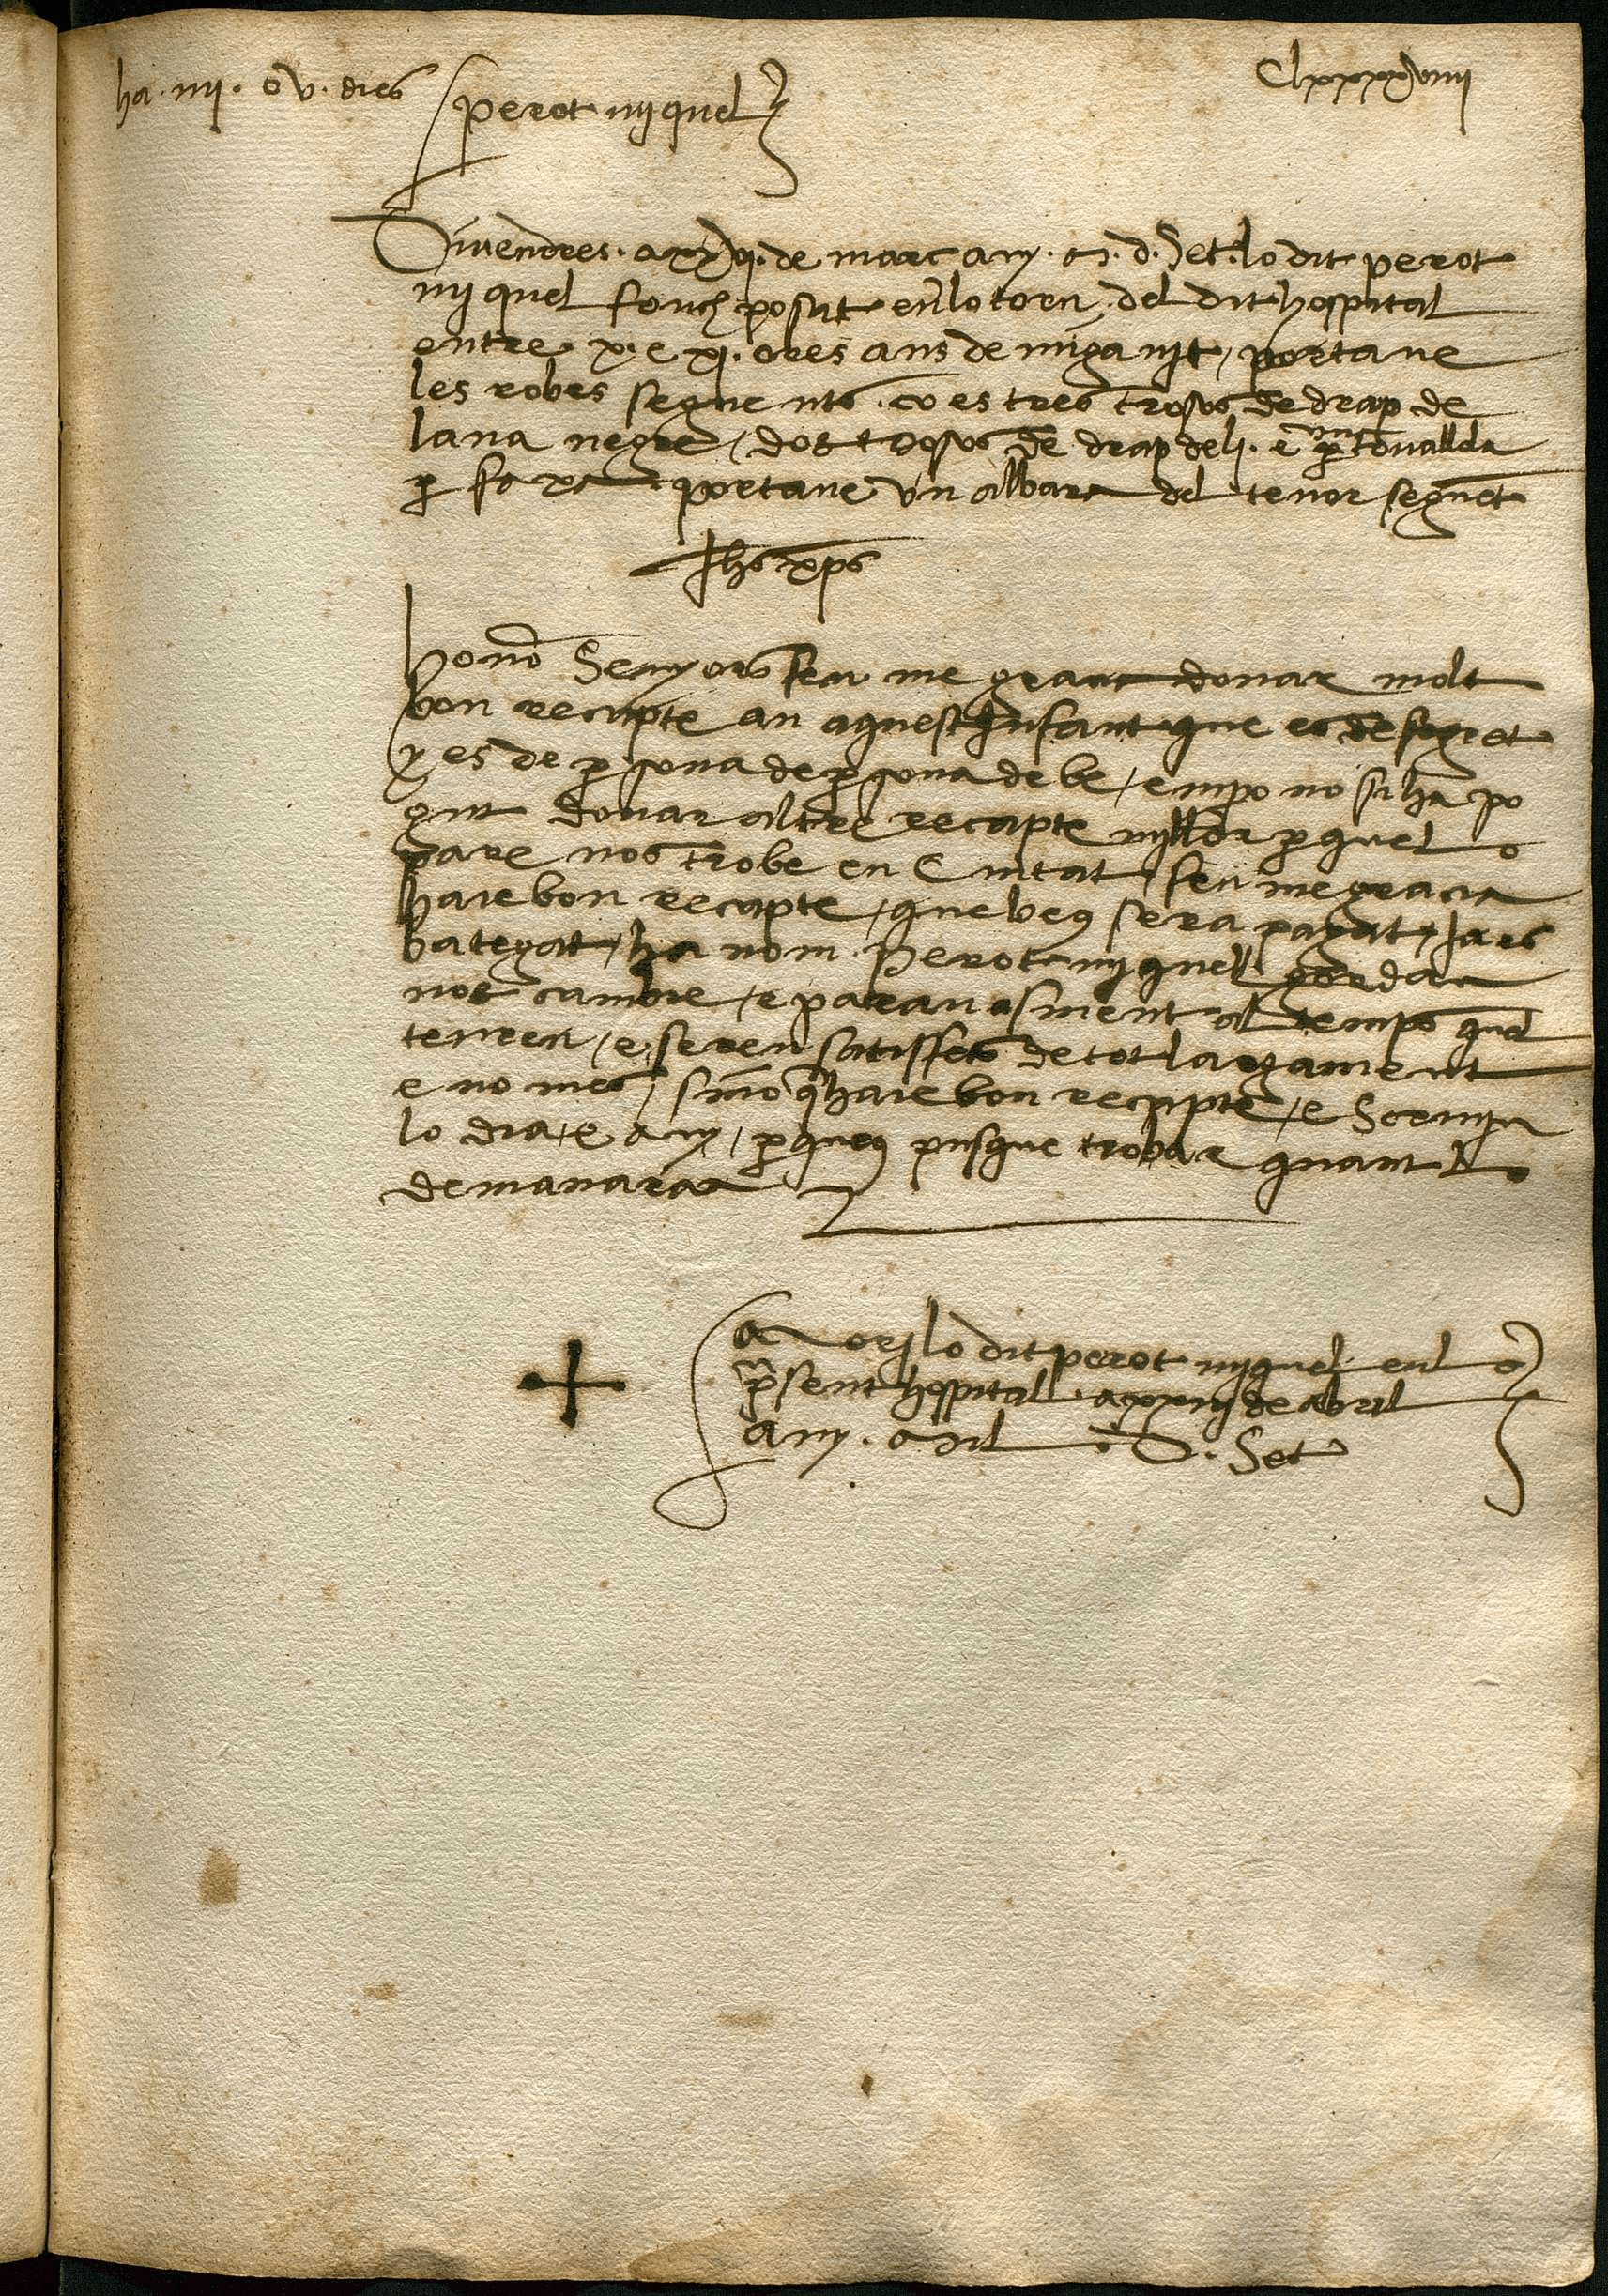 ha · iiij · o v · dies
perot miquel
Clxxxxviiij
Divendres · a xxvj · de març any · M · d · Set · lo dit perot
miquel fonch posat en lo torn del dit hospital
entre x · e xj · ores ans de miga nit / portave
les robes seguents · co es tres trosos de drap de
lana negre / dos trosos de drap de li · e una tovallola
p faxa portave un albara del tenor seguet
Jhs xps
honor Senyors feu me gracia donar molt
bon recapte an aquest Infant que es de segret
y es de psona de psona de be / empo no si ha po
gut donar altre recapte myllor p quel
pare nos trobe en Ciutat / feu me gracia
haie bon recapte / que be us sera pagat / Ja es
bategat / ha nom Perot miquel
not cambie / e paran asment al temps quel
tenren / e seren satisffets de tot largament
e no mes / sino q haie bon recapte / e Scriviu
lo dia e any / p queus pusque trobar quant
demanaran
+
Mori lo dit perot miquel en l
psent hospital a xxiij de abril
any · Mil · D · Set